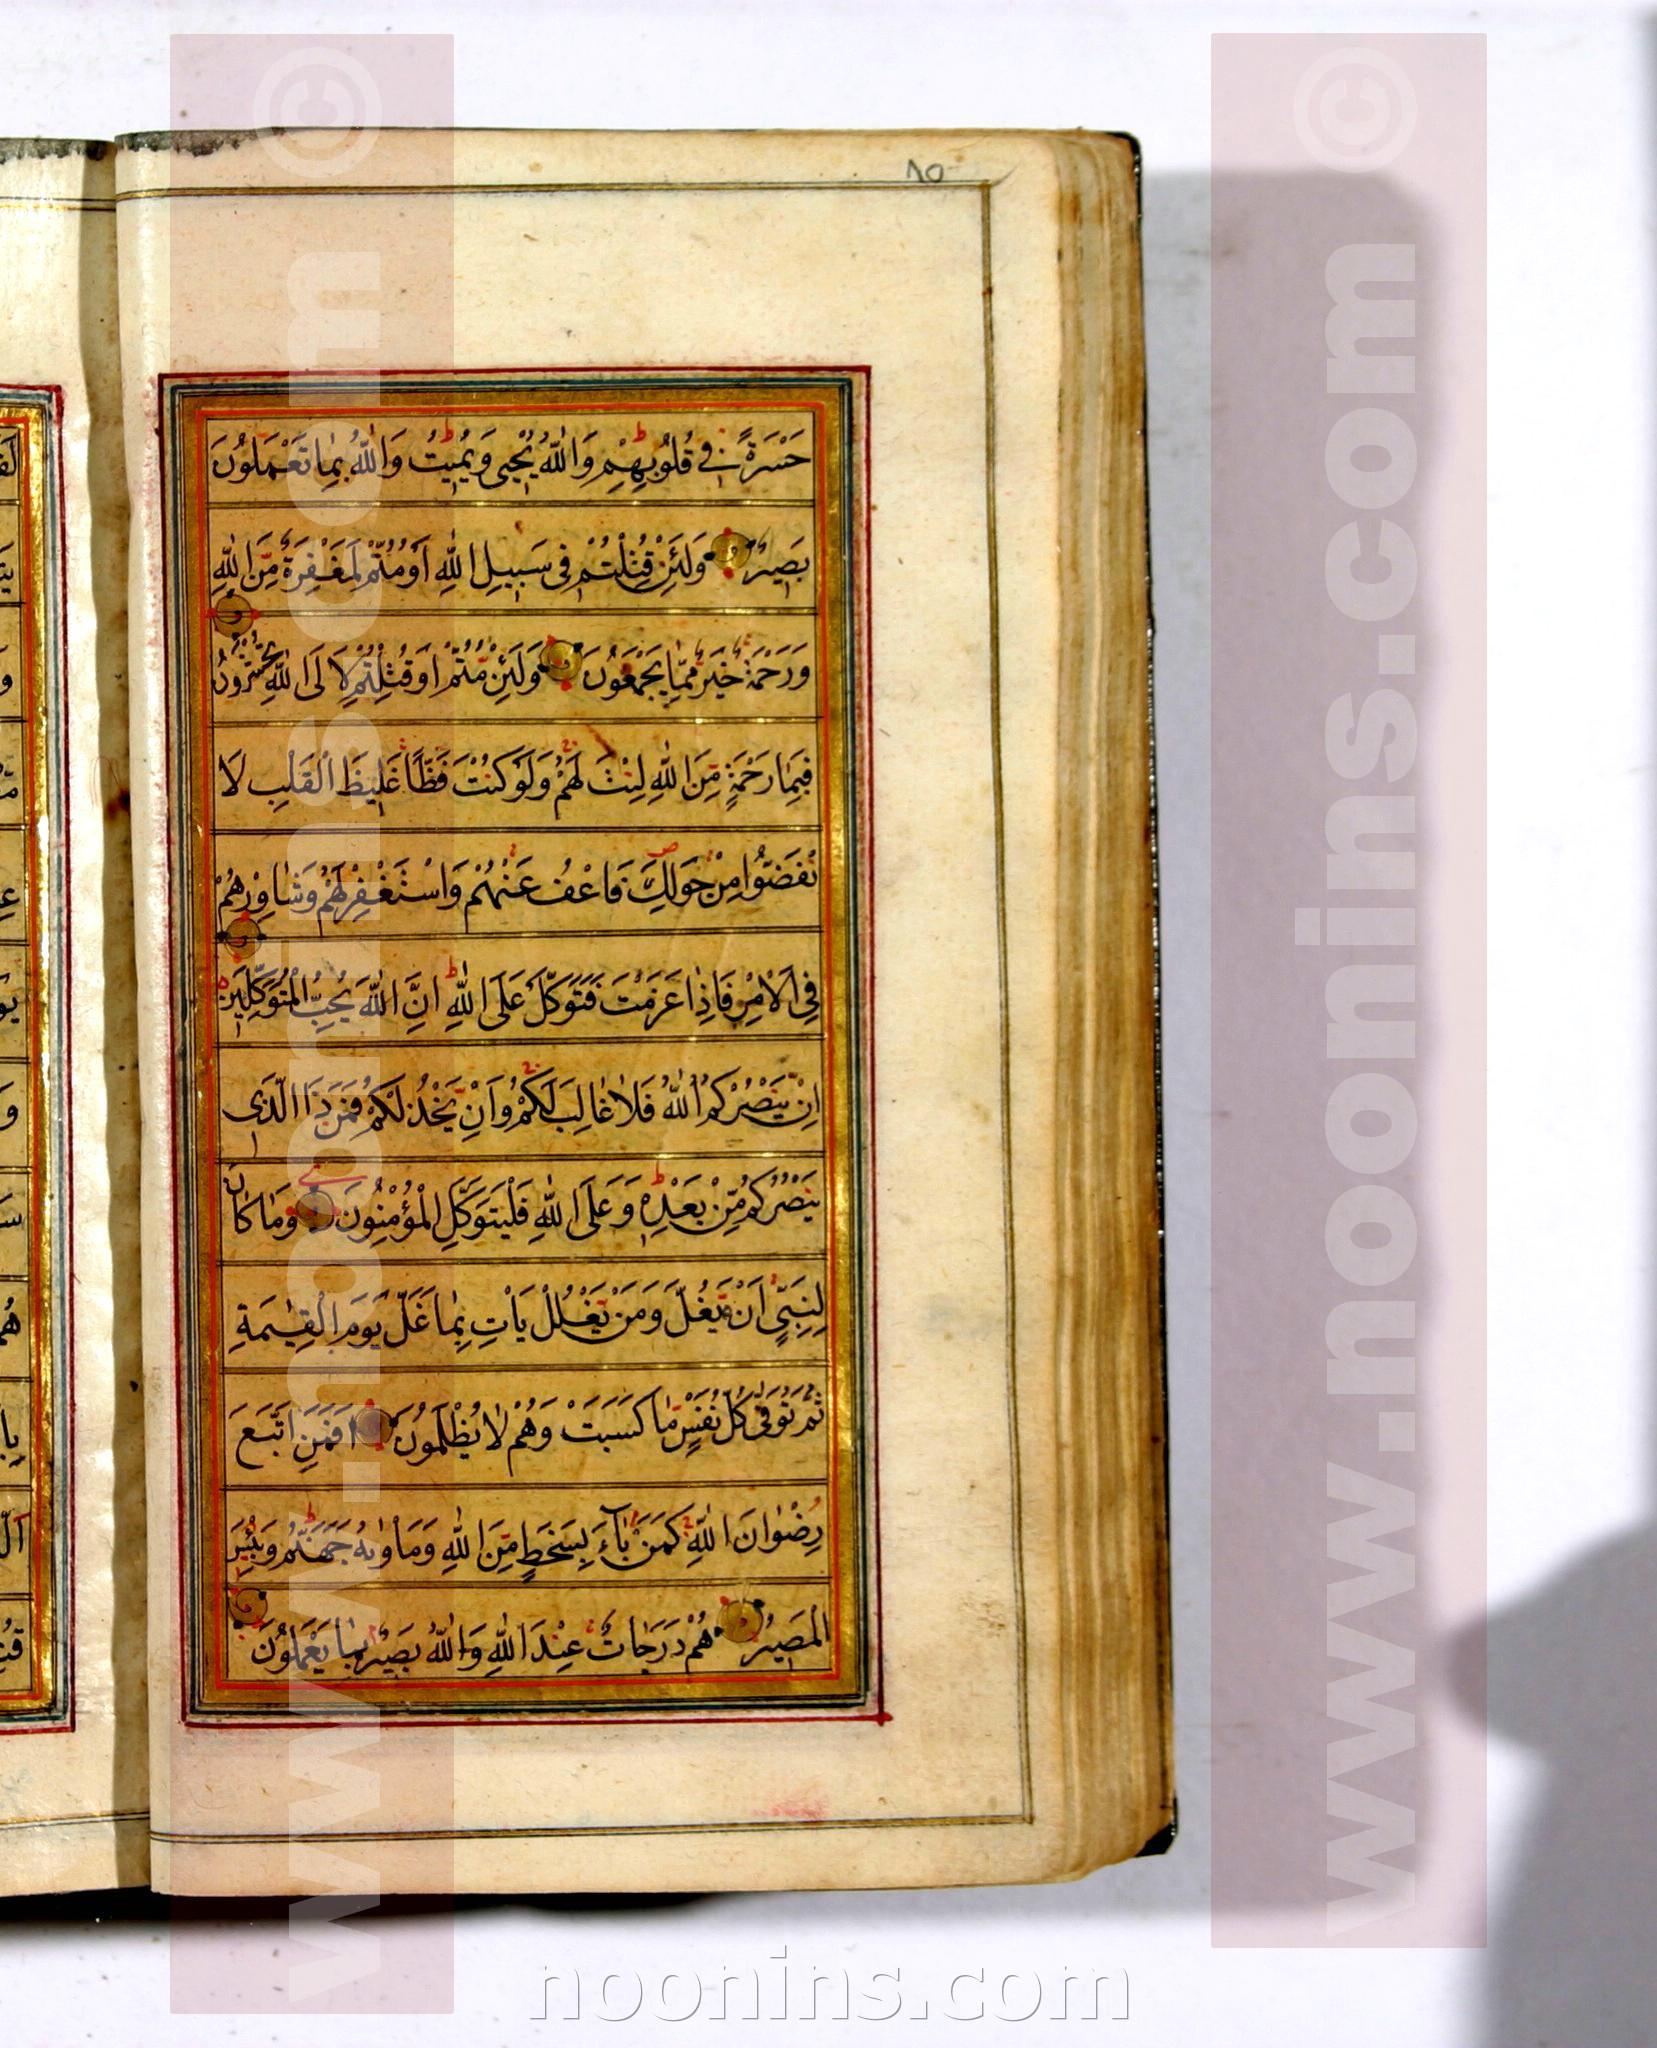 ٨٥
حَسْرَةً فِي قُلُوبِهِمْ وَاللّٰهُ يُحْيِي وَيُمِيتُ وَاللّٰهُ بِمَا تَعْمَلُونَ
بَصِيرٌ وَلَئِنْ قُتِلْتُمْ فِي سَبِيلِ اللّٰهِ أَوْ مُتُّمْ لَمَغْفِرَةٌ مِنَ اللّٰهِ
وَرَحْمَةٌ خَيْرٌ مِمَّا يَجْمَعُونَ وَلَئِنْ مُتُّمْ أَوْ قُتِلْتُمْ لَإِلَى اللّٰهِ تُحْشَرُونَ
فَبِمَا رَحْمَةٍ مِنَ اللّٰهِ لِنْتَ لَهُمْ وَلَوْ كُنْتَ فَظًّا غَلِيظَ الْقَلْبِ لَا
نْفَضُّوا مِنْ حَوْلِكَ فَاعْفُ عَنْهُمْ وَاسْتَغْفِرْ لَهُمْ وَشَاوِرْهُمْ
فِي الْأَمْرِ فَإِذَا عَزَمْتَ فَتَوَكَّلْ عَلَى اللّٰهِ إِنَّ اللّٰهَ يُحِبُّ الْمُتَوَكِّلِينَ
إِنْ يَنْصُرْكُمُ اللّٰهُ فَلَا غَالِبَ لَكُمْ وَإِنْ يَخْذُلْكُمْ فَمَنْ ذَا الَّذِي
يَنْصُرُكُمْ مِنْ بَعْدِهِ وَعَلَى اللّٰهِ فَلْيَتَوَكَّلِ الْمُؤْمِنُونَ وَمَا كَانَ
لِنَبِيٍّ أَنْ يَغُلَّ وَمَنْ يَغْلُلْ يَأْتِ بِمَا غَلَّ يَوْمَ الْقِيٰمَةِ
ثُمَّ تُوَفَّى كُلُّ نَفْسٍ مَا كَسَبَتْ وَهُمْ لَا يُظْلَمُونَ أَفَمَنِ اتَّبَعَ
رِضْوَانَ اللّٰهِ كَمَنْ بَاءَ بِسَخَطٍ مِنَ اللّٰهِ وَمَأْوٰيهُ جَهَنَّمُ وَبِئْسَ
الْمَصِيرُ هُمْ دَرَجَاتٌ عِنْدَ اللّٰهِ وَاللّٰهُ بَصِيرٌ بِمَا يَعْمَلُونَ
www.noonins.com ©
www.noonins.com ©
noonins.com